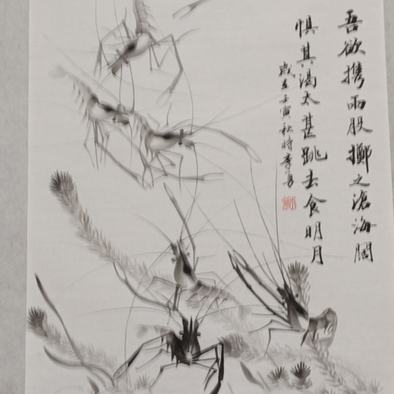 吾欲携雨股掷之滄海闊
惧其渴太甚跳去食明月
歲在壬寅秋時